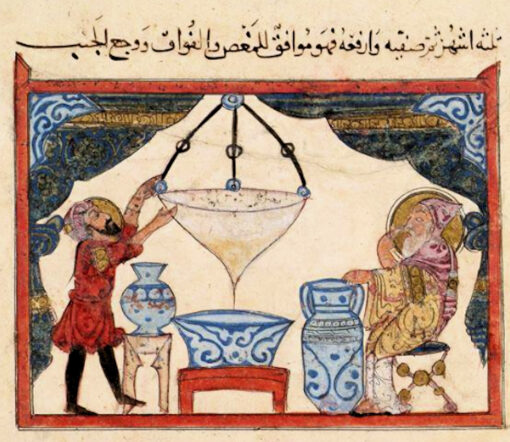 ثلثه اشهر ثم صفيه وارفعه فهو موافق للمغص والفواق ووجع الجنب